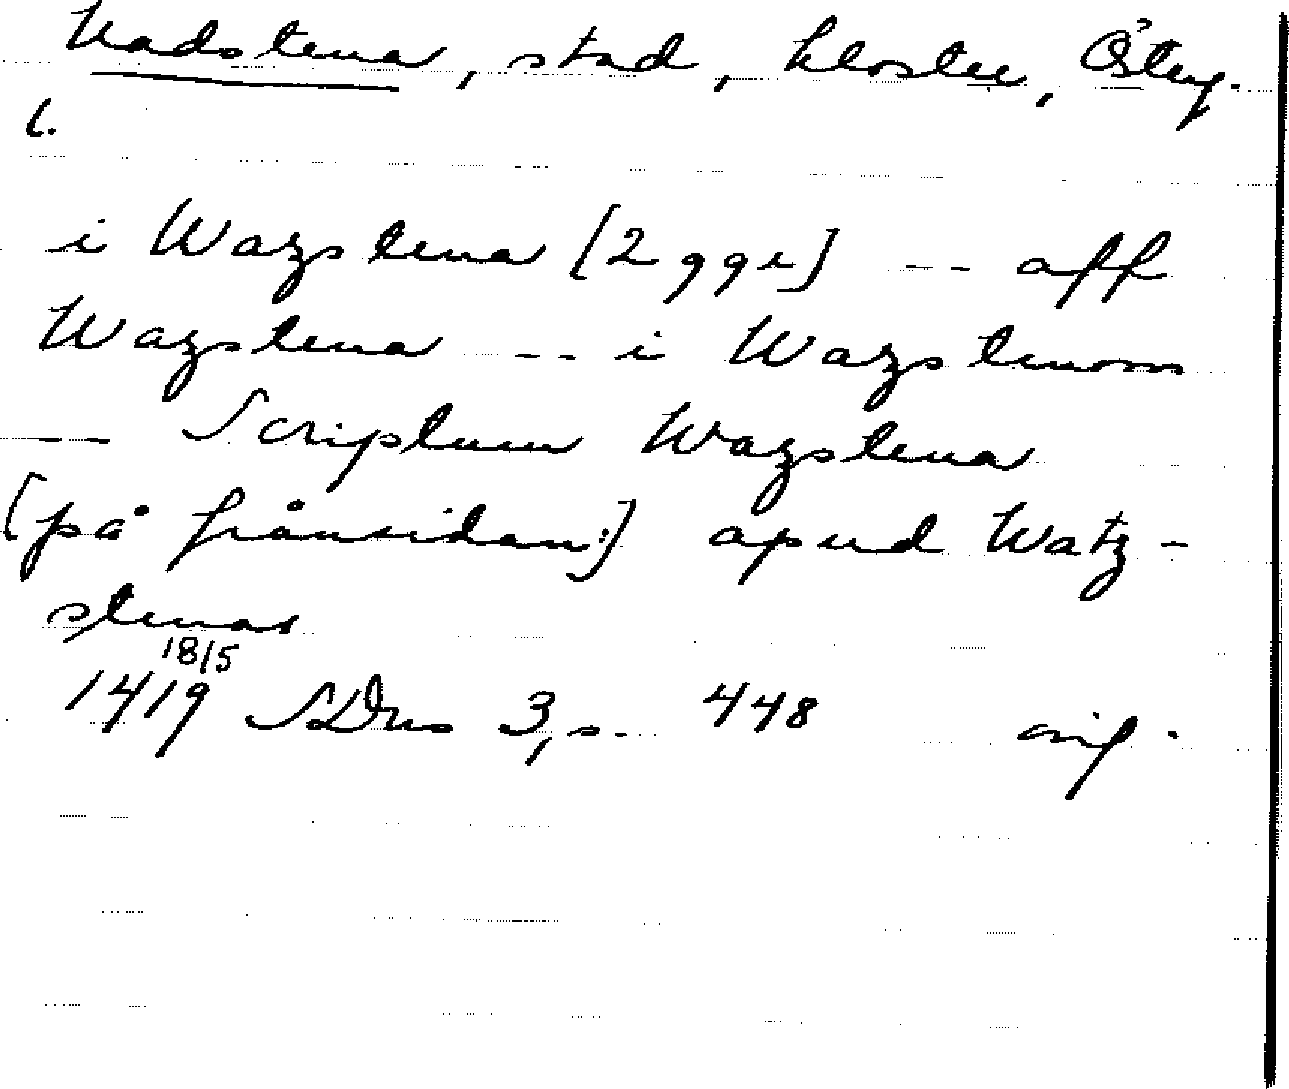 Vadstena, stad, kloster, Österg.
l.
i Wazstena [2 ggr] -- aff
Wazstena --- i Wazstenom
--- Scriptum Wazstena
[på frånsidan:] apud Watz-
stenas
18/5
1419 SDns 3, s. 448 orig.